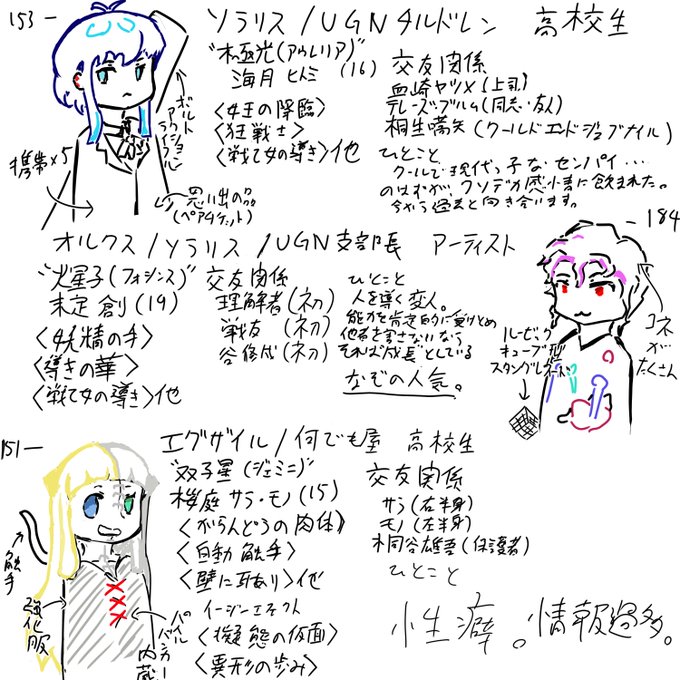 153 -
ソラリス/UGNチルドレン 高校生
"極光(アウレリア)"
海月 ヒトミ (16)
<女王の降臨>
<狂戦士>
<戦乙女の導き>他
交友関係
血崎ヤツメ(上司)
テレーズ・ブルム(同志・友人)
桐生喬矢(クールドエンドジョブナイル)
ひとこと
クールで現代っ子な、センパイ…
のはずが、クソデカ感情に飲まれた。
今から過去と向き合います。
ボルト
アクション
ライフル
携帯×5
思い出の品
(ペアチケット)
オルクス/ソラリス/UGN支部長 アーティスト
- 184
"火星子(フォシンス)"
未定 創(19)
<妖精の手>
<導きの華>
<戦乙女の導き>他
交友関係
理解者(初)
戦友 (初)
谷修成(初)
ひとこと
人を導く変人。
能力を肯定的に受けとめ
他者を害さないなら
それは"成長"としている
なぞの人気。
ルービック
キューブ型
スタングレネード
コネが
たくさん
151 -
エグザイル/何でも屋 高校生
"双子星(ジェミニ)"
桜庭 サラ・モノ(15)
<がらんどうの肉体>
<自動触手>
<壁に耳あり>他
イージーエフェクト
<擬態の仮面>
<異形の歩み>
交友関係
サラ(右半身)
モノ(左半身)
桐谷雄吾(保護者)
ひとこと
小生癖。情報過多。
触手
強化服
パイル
バンカー
内蔵